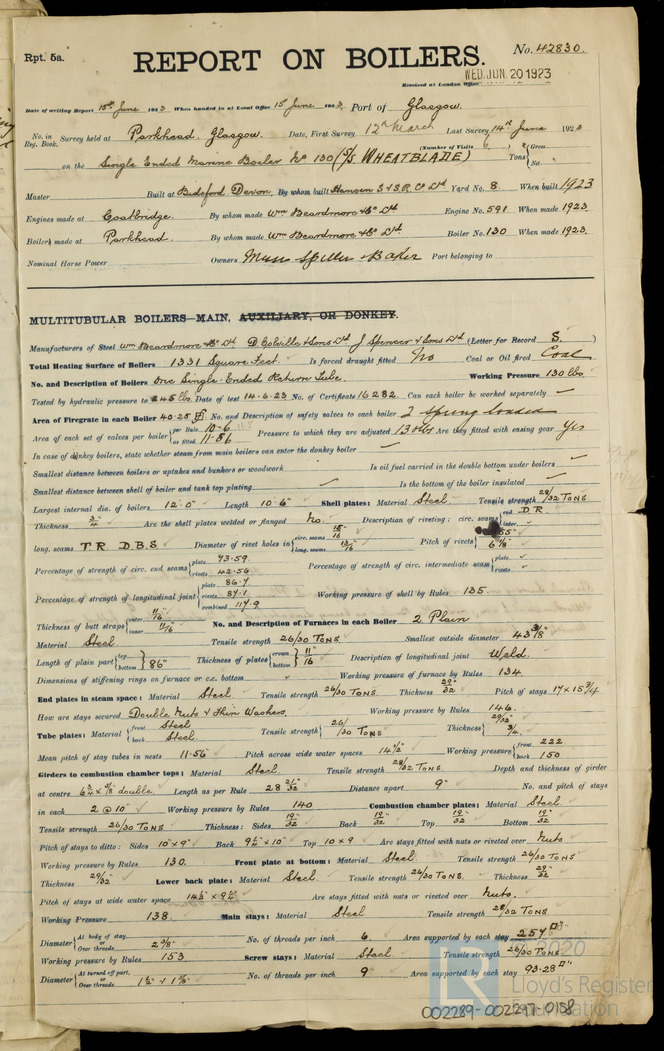 Rpt. 5a.
REPORT ON BOILERS.
No. 42830.
WED. JUN. 20 1923
Received at London Office
Date of writing Report 15th June 1923 When handed in at Local Office 15 June 1923 Port of Glasgow.
No. in Reg. Book. Survey held at Parkhead. Glasgow. Date, First Survey 12th March Last Survey 14th June 1923
(Number of Visits 6 )
on the Single Ended Marine Boiler No 130 (S/S WHEATBLADE) Tons { Gross Net
Master Built at Bideford Devon. By whom built Hansen S & S.R. Co Ltd Yard No. 8. When built 1923
Engines made at Coatbridge. By whom made Wm Beardmore & Co Ltd Engine No. 591 When made 1923
Boilers made at Parkhead. By whom made Wm Beardmore & Co Ltd Boiler No. 130 When made 1923.
Nominal Horse Power Owners Mess Spiller & Baker Port belonging to
MULTITUBULAR BOILERS—MAIN, AUXILIARY, OR DONKEY.
Manufacturers of Steel Wm Beardmore & Co Ltd D Colville & Sons Ltd J Spencer & Sons Ltd (Letter for Record S. )
Total Heating Surface of Boilers 1331 Square Feet. Is forced draught fitted No Coal or Oil fired Coal
No. and Description of Boilers One Single Ended Return Tube. Working Pressure 130 lbs.
Tested by hydraulic pressure to 245 lbs. Date of test 14-6-23 No. of Certificate 16282. Can each boiler be worked separately ✓
Area of Firegrate in each Boiler 40.25 No. and Description of safety valves to each boiler 2 Spring loaded
Area of each set of valves per boiler { per Rule 10.6 as fitted 11.86 Pressure to which they are adjusted 130 lbs Are they fitted with easing gear Yes
In case of donkey boilers, state whether steam from main boilers can enter the donkey boiler ✓
Smallest distance between boilers or uptakes and bunkers or woodwork Is oil fuel carried in the double bottom under boilers ✓
Smallest distance between shell of boiler and tank top plating ✓ Is the bottom of the boiler insulated ✓
Largest internal dia. of boilers 12'-0" Length 10'-6" Shell plates: Material Steel Tensile strength 28/32 TONS
Thickness 3/4" Are the shell plates welded or flanged No. Description of riveting: circ. seams { end D.R. inter. ✓
long. seams T.R. D.B.S. Diameter of rivet holes in { circ. seams 15/16 long. seams 13/16 Pitch of rivets { 6 1/8"
Percentage of strength of circ. end seams { plate 73.59 rivets 42.56 Percentage of strength of circ. intermediate seam { plate ✓ rivets ✓
Percentage of strength of longitudinal joint { plate 86.7 rivets 87.1 combined 117.9 Working pressure of shell by Rules 135.
Thickness of butt straps { outer 11/16 inner 11/16 No. and Description of Furnaces in each Boiler 2 Plain
Material Steel Tensile strength 26/30 TONS. Smallest outside diameter 43 3/8"
Length of plain part { top bottom } 86" Thickness of plates { crown bottom } 11"/16 Description of longitudinal joint Weld.
Dimensions of stiffening rings on furnace or c.c. bottom ✓ Working pressure of furnace by Rules 134.
End plates in steam space: Material Steel. Tensile strength 26/30 TONS Thickness 29"/32 Pitch of stays 17 x 15 3/4
How are stays secured Double Nuts & Thin Washers. Working pressure by Rules 146.
Tube plates: Material { front Steel back Steel. Tensile strength { 26/30 TONS Thickness { 29/32" 3/4.
Mean pitch of stay tubes in nests 11.56 Pitch across wide water spaces 14 1/2" Working pressure { front 222. back 150
Girders to combustion chamber tops: Material Steel Tensile strength 28/32 TONS Depth and thickness of girder
at centre 6 3/4 x 5/8" double Length as per Rule 28 Distance apart 9" No. and pitch of stays
in each 2 @ 10" Working pressure by Rules 140 Combustion chamber plates: Material Steel
Tensile strength 26/30 TONS Thickness: Sides 19"/32 Back 19"/32 Top 19"/32 Bottom 19"/32
Pitch of stays to ditto: Sides 10" x 9" Back 9 1/2" x 10" Top 10 x 9 Are stays fitted with nuts or riveted over Nuts
Working pressure by Rules 130. Front plate at bottom: Material Steel. Tensile strength 26/30 TONS
Thickness 29/32 Lower back plate: Material Steel. Tensile strength 26/30 TONS. Thickness 29"/32
Pitch of stays at wide water space 14 1/2 x 9 1/2 Are stays fitted with nuts or riveted over Nuts.
Working Pressure 138. Main stays: Material Steel Tensile strength 28/32 TONS
Diameter { At body of stay, or Over threads 2 5/8" No. of threads per inch 6 Area supported by each stay 257
Working pressure by Rules 153 Screw stays: Material Steel Tensile strength 26/30 TONS
Diameter { At turned off part, or Over threads 1 1/2" + 1 5/8" No. of threads per inch 9 Area supported by each stay 93.28
© 2020
Lloyd's Register
Foundation
002289-002297-0158